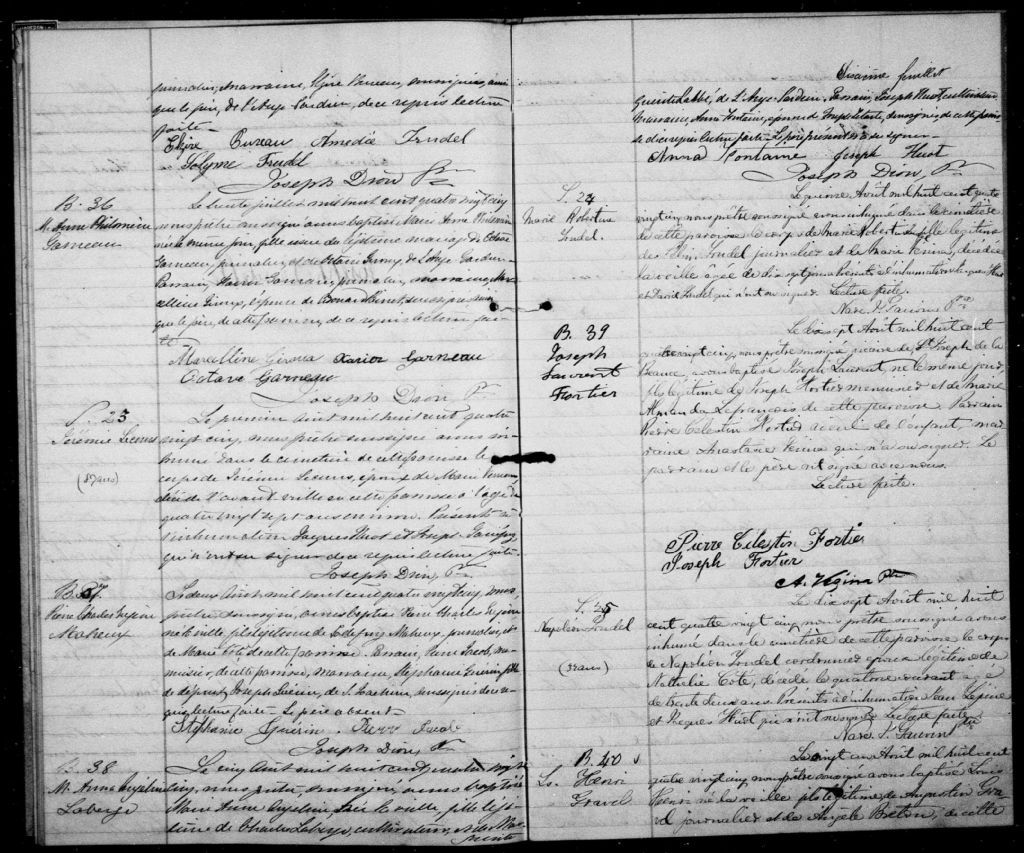 journalier, marraine, Elzire Bureau, soussignés, ainsi
que le père, de l'Ange Gardien, de ce requis lecture
faite.
Elzire Bureau Amedia Trudel
Solyme Trudel
Joseph Dion, Ptre
B. 36
M. Anne Philomène
Garneau
Le trente juillet mil huit cent quatre vingt cinq
nous prêtre soussigné avons baptisé Marie Anne Philomène
née le même jour, fille issue du légitime mariage de Octave
Garneau, journalier, et de de l'Ange Gardien
Parrain, Xavier Garneau, journalier, marraine, Mar-
celline Giroux, épouse de soussignés
que le père, de cette paroisse, de ce requis lecture fai-
te.
Marcelline Giroux Xavier Garneau
Octave Garneau
Joseph Dion, Ptre
S. 25
Jérémie Lecours
(87 ans)
Le premier août mil huit cent quatre
vingt cinq, nous prêtre soussigné avons in-
humé dans le cimetière de cette paroisse le
corps de Jérémie Lecours, époux de Marie
décédé l'avant veille en cette paroisse à l'âge de
quatre vingt sept ans environ. Présents à
l'inhumation Jacques Huot et Joseph
qui n'ont su signer de ce requis lecture faite.
Joseph Dion, Ptre
B. 37
Pierre Charles Eugène
Matheux
Le deux août mil huit cent quatre vingt cinq, nous
prêtre soussigné, avons baptisé Pierre Charles Eugène
né la veille fils légitime de Matheux, journalier, et
de Marie Côté de cette paroisse. Parrain, Pierre Jacob, me-
nuisier, de cette paroisse, marraine, Stéphanie Guérin, fille
de défunt Joseph Guérin, de St Joachim, soussignés de ce re-
quis lecture faite. Le père absent.
Stéphanie Guérin Pierre Jacob
Joseph Dion, Ptre
B. 38
M. Anne Angelina
Laberge
Le cinq août mil huit cent quatre vingt
cinq, nous prêtre, soussigné, avons baptisé
Marie Anne Angelina, née la veille, fille légi-
time de Charles Laberge, cultivateur, et de Mar-
guerite
Sixième feuillet
guerite Labbé, de l'Ange Gardien. Parrain, Joseph Huot cultivateur
marraine, Anna Fontaine, épouse de soussignés de cette parois-
se de ce requis lecture faite. Le père présent n'a su signer.
Anna Fontaine Joseph Huot
Joseph Dion, Ptre
S. 24
Marie Robertine
Trudel.
Le quinze Août mil huit cent quatre
vingt cinq nous prêtre soussigné avons inhumé dans le cimetière
de cette paroisse le corps de Marie Robertine fille légitime
de Trudel journalier et de Marie Vézina, décédée
la veille agée de dix sept jours. Présents à l'inhumation Huot
et David Trudel qui n'ont su signer. Lecture faite.
Narc. V. Gauvin Ptre
B. 39
Joseph
Laurent
Fortier
Le dix sept Août mil huit cent
quatre vingt cinq, nous prêtre soussigné vicaire de St Joseph de la
Beauce, avons baptisé Joseph Laurent, né le même jour,
fils légitime de Joseph Fortier menuisier et de Marie
Lefrançois de cette paroisse. Parrain
Pierre Celestin Fortier aïeul de l'enfant, mar-
raine Anastasie Vézina qui n'a su signer. Le
parrain et le père ont signé avec nous.
Lecture faite.
Pierre Celestin Fortier
Joseph Fortier
A. Vézina Ptre
S. 25
Napoléon Trudel
(32 ans)
Le dix sept Août mil huit
cent quatre vingt cinq nous prêtre soussigné avons
inhumé dans le cimetière de cette paroisse le corps
de Napoléon Trudel cordonnier époux légitime de
Nathalie Côté, décédé le quatorze courant agé
de trente deux ans. Présents à l'inhumation Jean Lépine
et Jacques Huot qui n'ont su signer. Lecture faite
Narc. V. Gauvin Ptre
B. 40
Ls. Henri
Gravel
Le vingt un Août mil huit cent
quatre vingt cinq nous prêtre soussigné avons baptisé Louis
Henri né la veille fils légitime de Augustin Gra-
vel journalier et de Angèle Breton, de cette